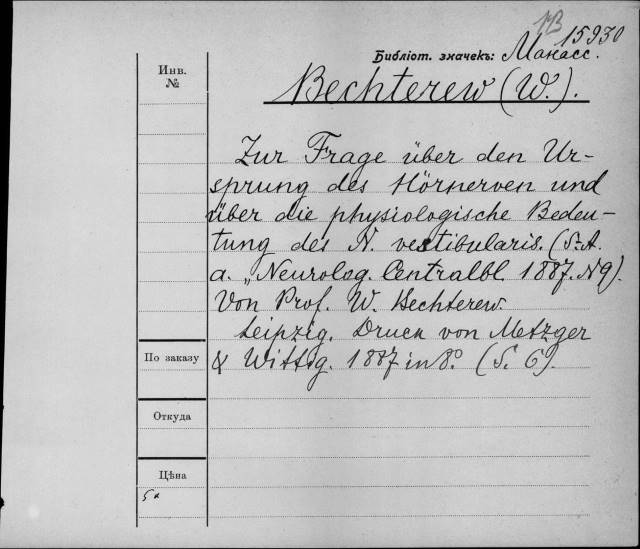 1В
15930
Библіот. значекъ: Макасс.
Инв.
№
Bechterew (W.).
Zur Frage über den Ur-
sprung des Hörnerven und
über die physiologische Bedeu-
tung des N. vestibularis. (S.-A.
a. „Neurolog. Centralbl. 1887. N 9).
Von Prof. W. Bechterew.
Leipzig. Druck von Metzger
& Wittig. 1887 in 8.° (S. 6).
По заказу
Откуда
Цѣна